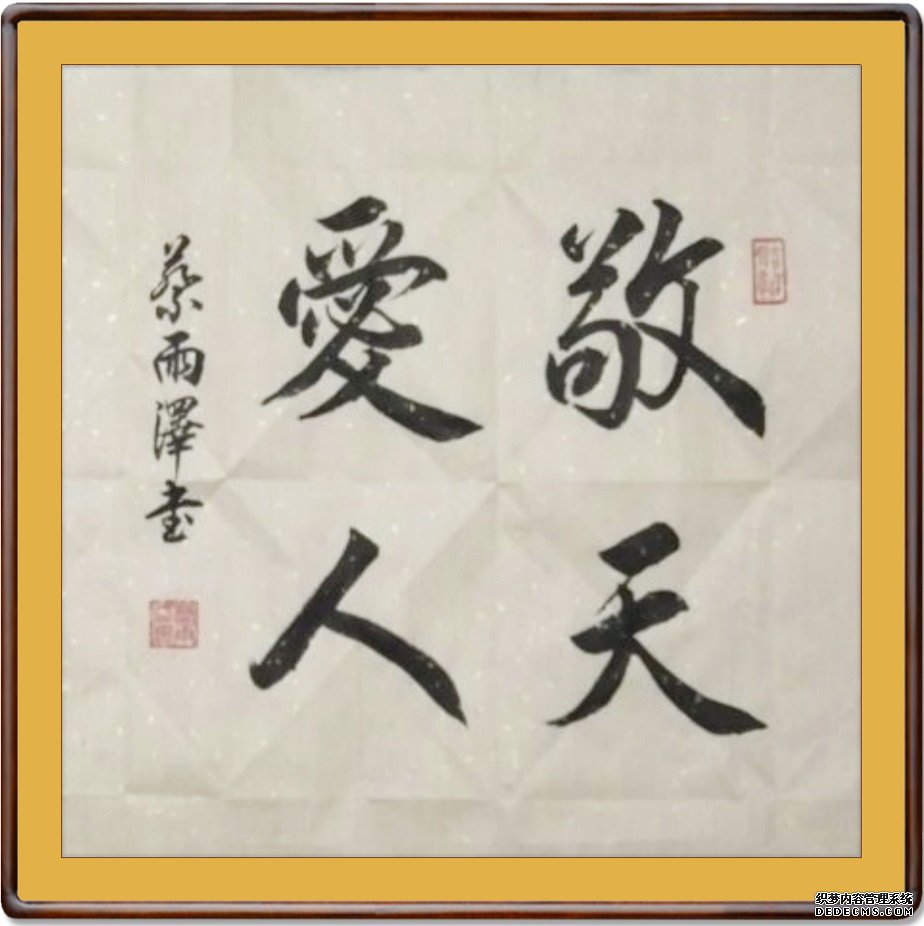 敬天
愛人
蔡雨澤书
织梦内容管理系统
DEDECMS.COM